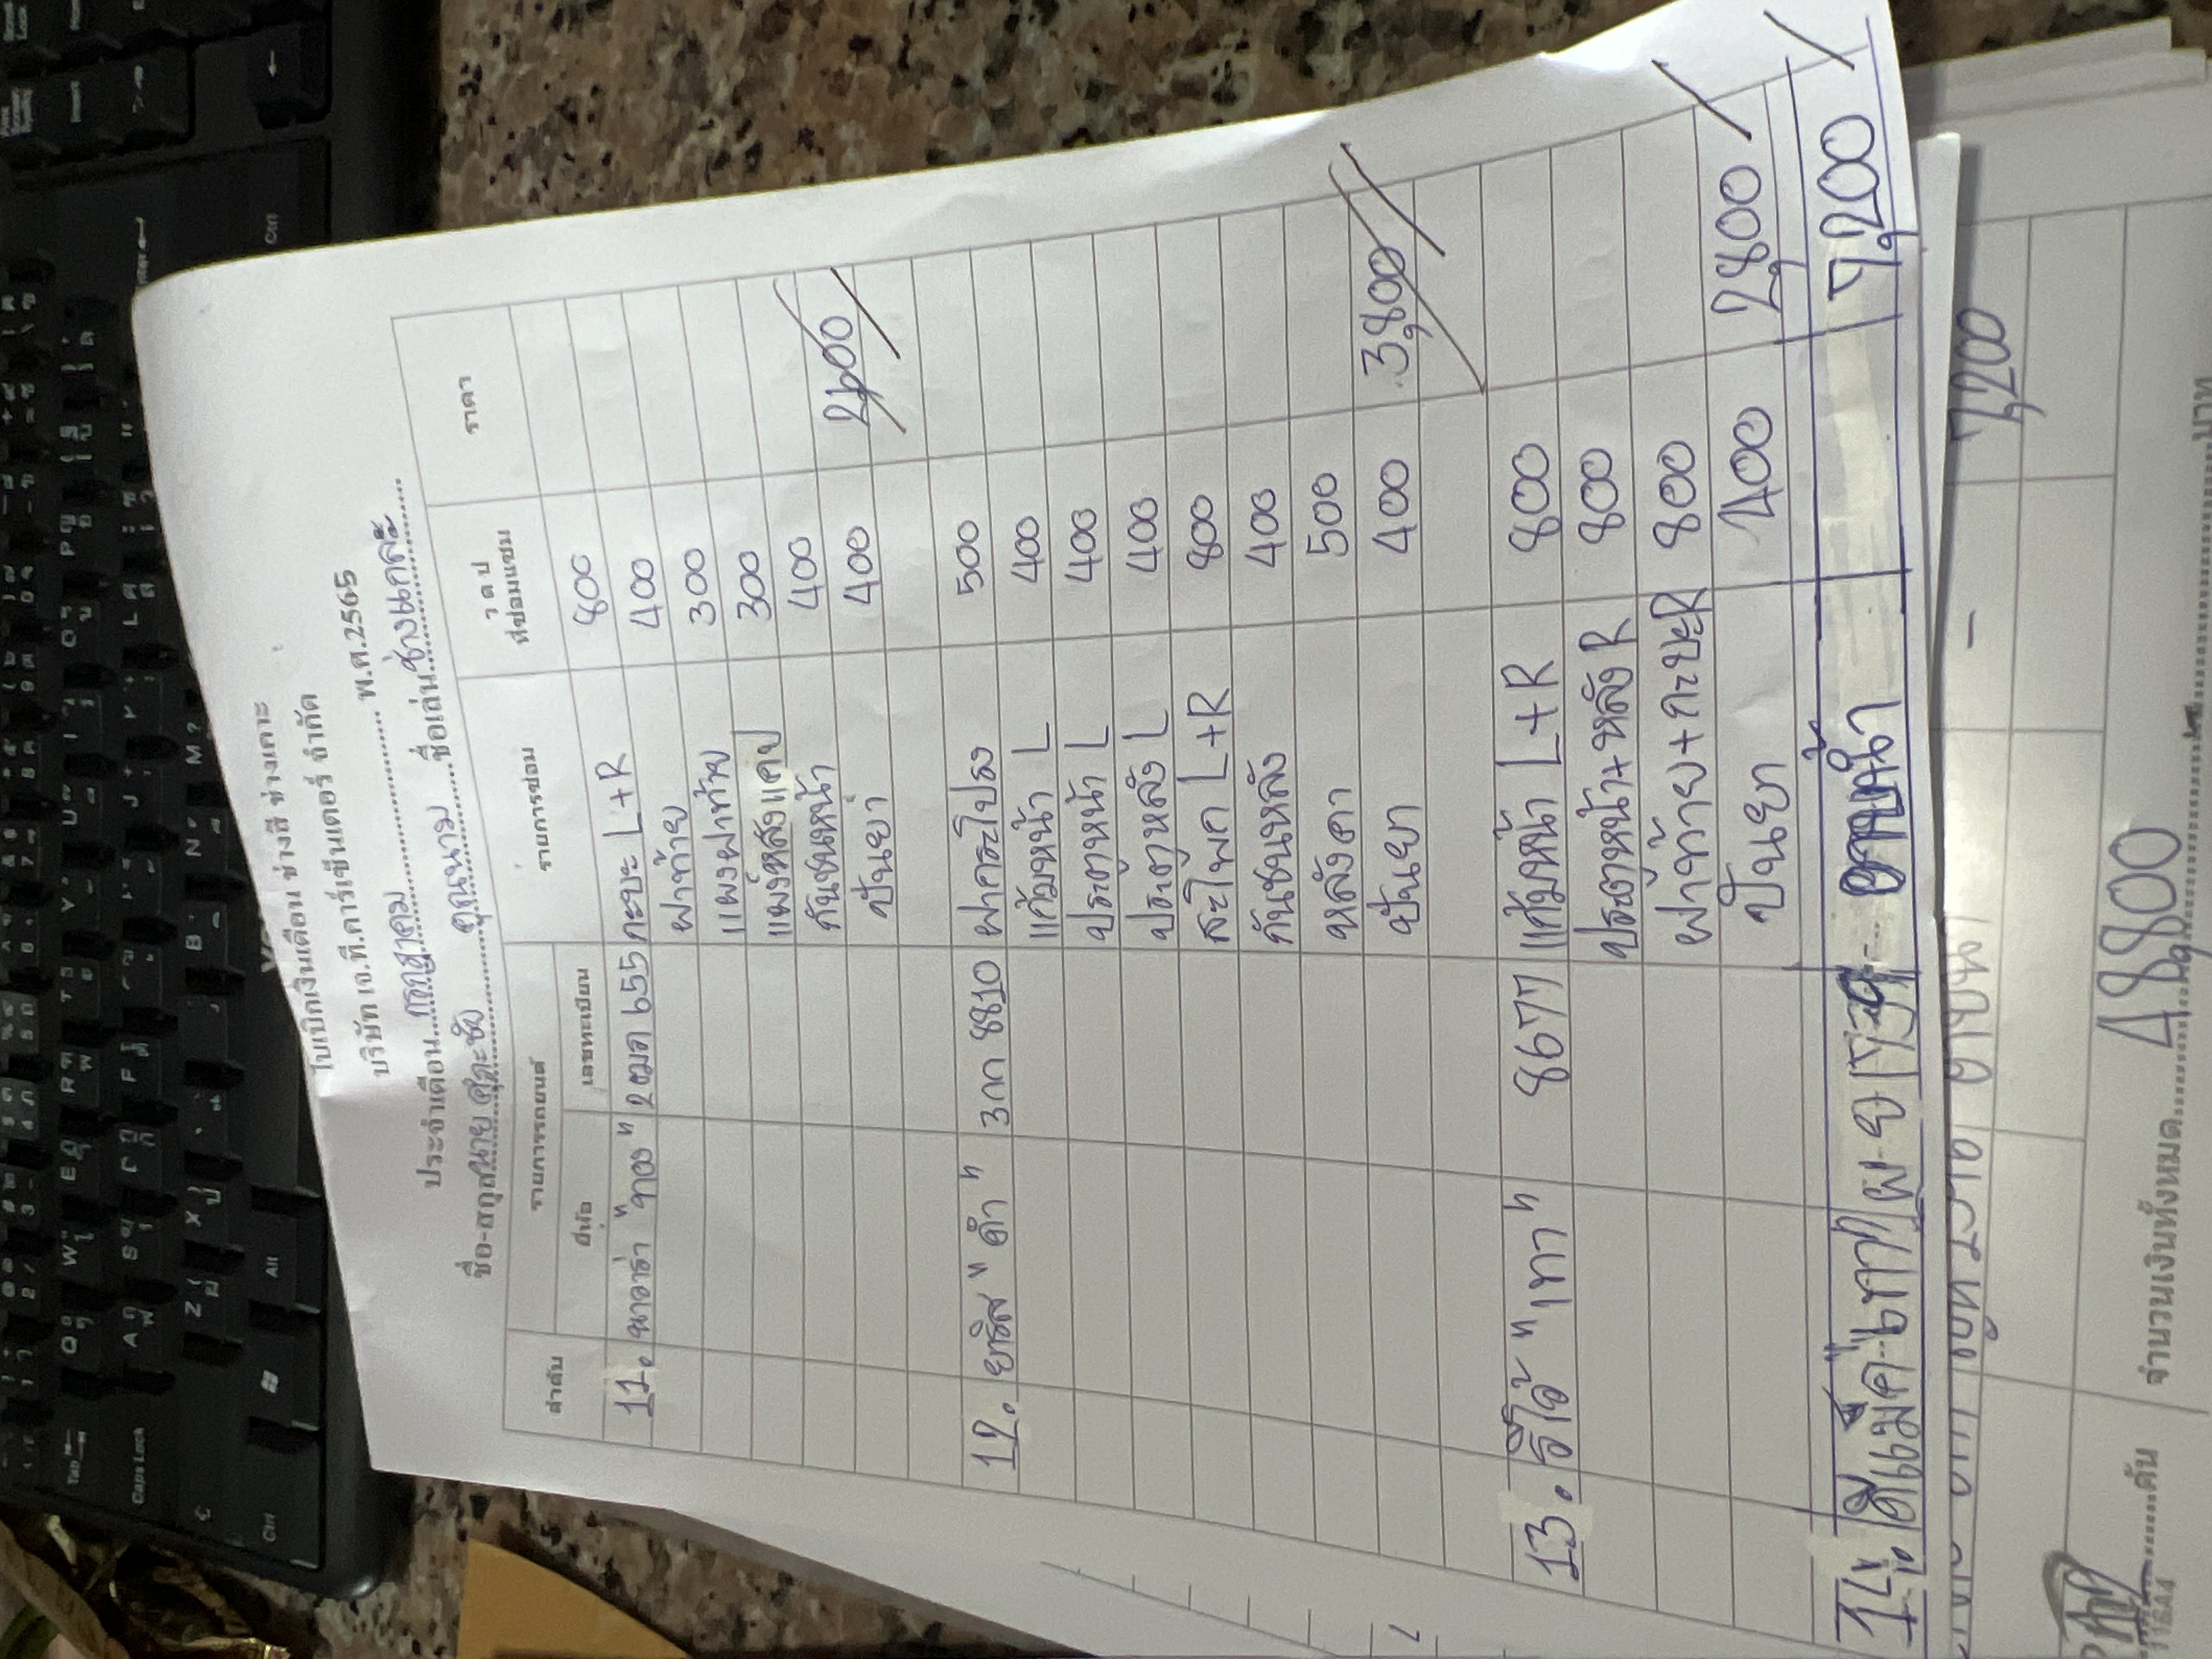 ใบเบิกเงินเดือน ช่างสี ช่างเคาะ
บริษัท เจ.ที.คาร์เซ็นเตอร์ จำกัด
ประจำเดือน....กรกฎาคม.... พ.ศ.2565
ชื่อ-สกุล นาย คุณนาม ชื่อเล่น ช่างแกละ
ลำดับ รายการรถยนต์ รายการซ่อม ว ด ป ที่ซ่อมแซม ราคา
ยี่ห้อ เลขทะเบียน
11. นาวาร่า "ทอง" 2ฒภ 655 กะบะ L+R 800
ฝาท้าย 400
แผงฝาท้าย 300
แผงหลังแคป 300
กันชนหน้า 400
ปั่นยา 400 2600
12. ยาริส "ดำ" 3กก 8810 ฝากระโปรง 500
แก้มหน้า L 400
ประตูหน้า L 400
ประตูหลัง L 400
สะโพก L+R 800
กันชนหลัง 400
หลังคา 500
ปั่นยา 400 3,800
13. รีโว้ "เทา" 8677 แก้มหน้า L+R 800
ประตูหน้า+หลัง R 800
ฝาท้าย+กะบะ R 800
ปั่นยา 400 2,800
14. ดีแม็ค "เทา" อาบน้ำ 7,200
อาบน้ำ - 7,200
จำนวนเงินทั้งหมด 4,800 บาท
คัน